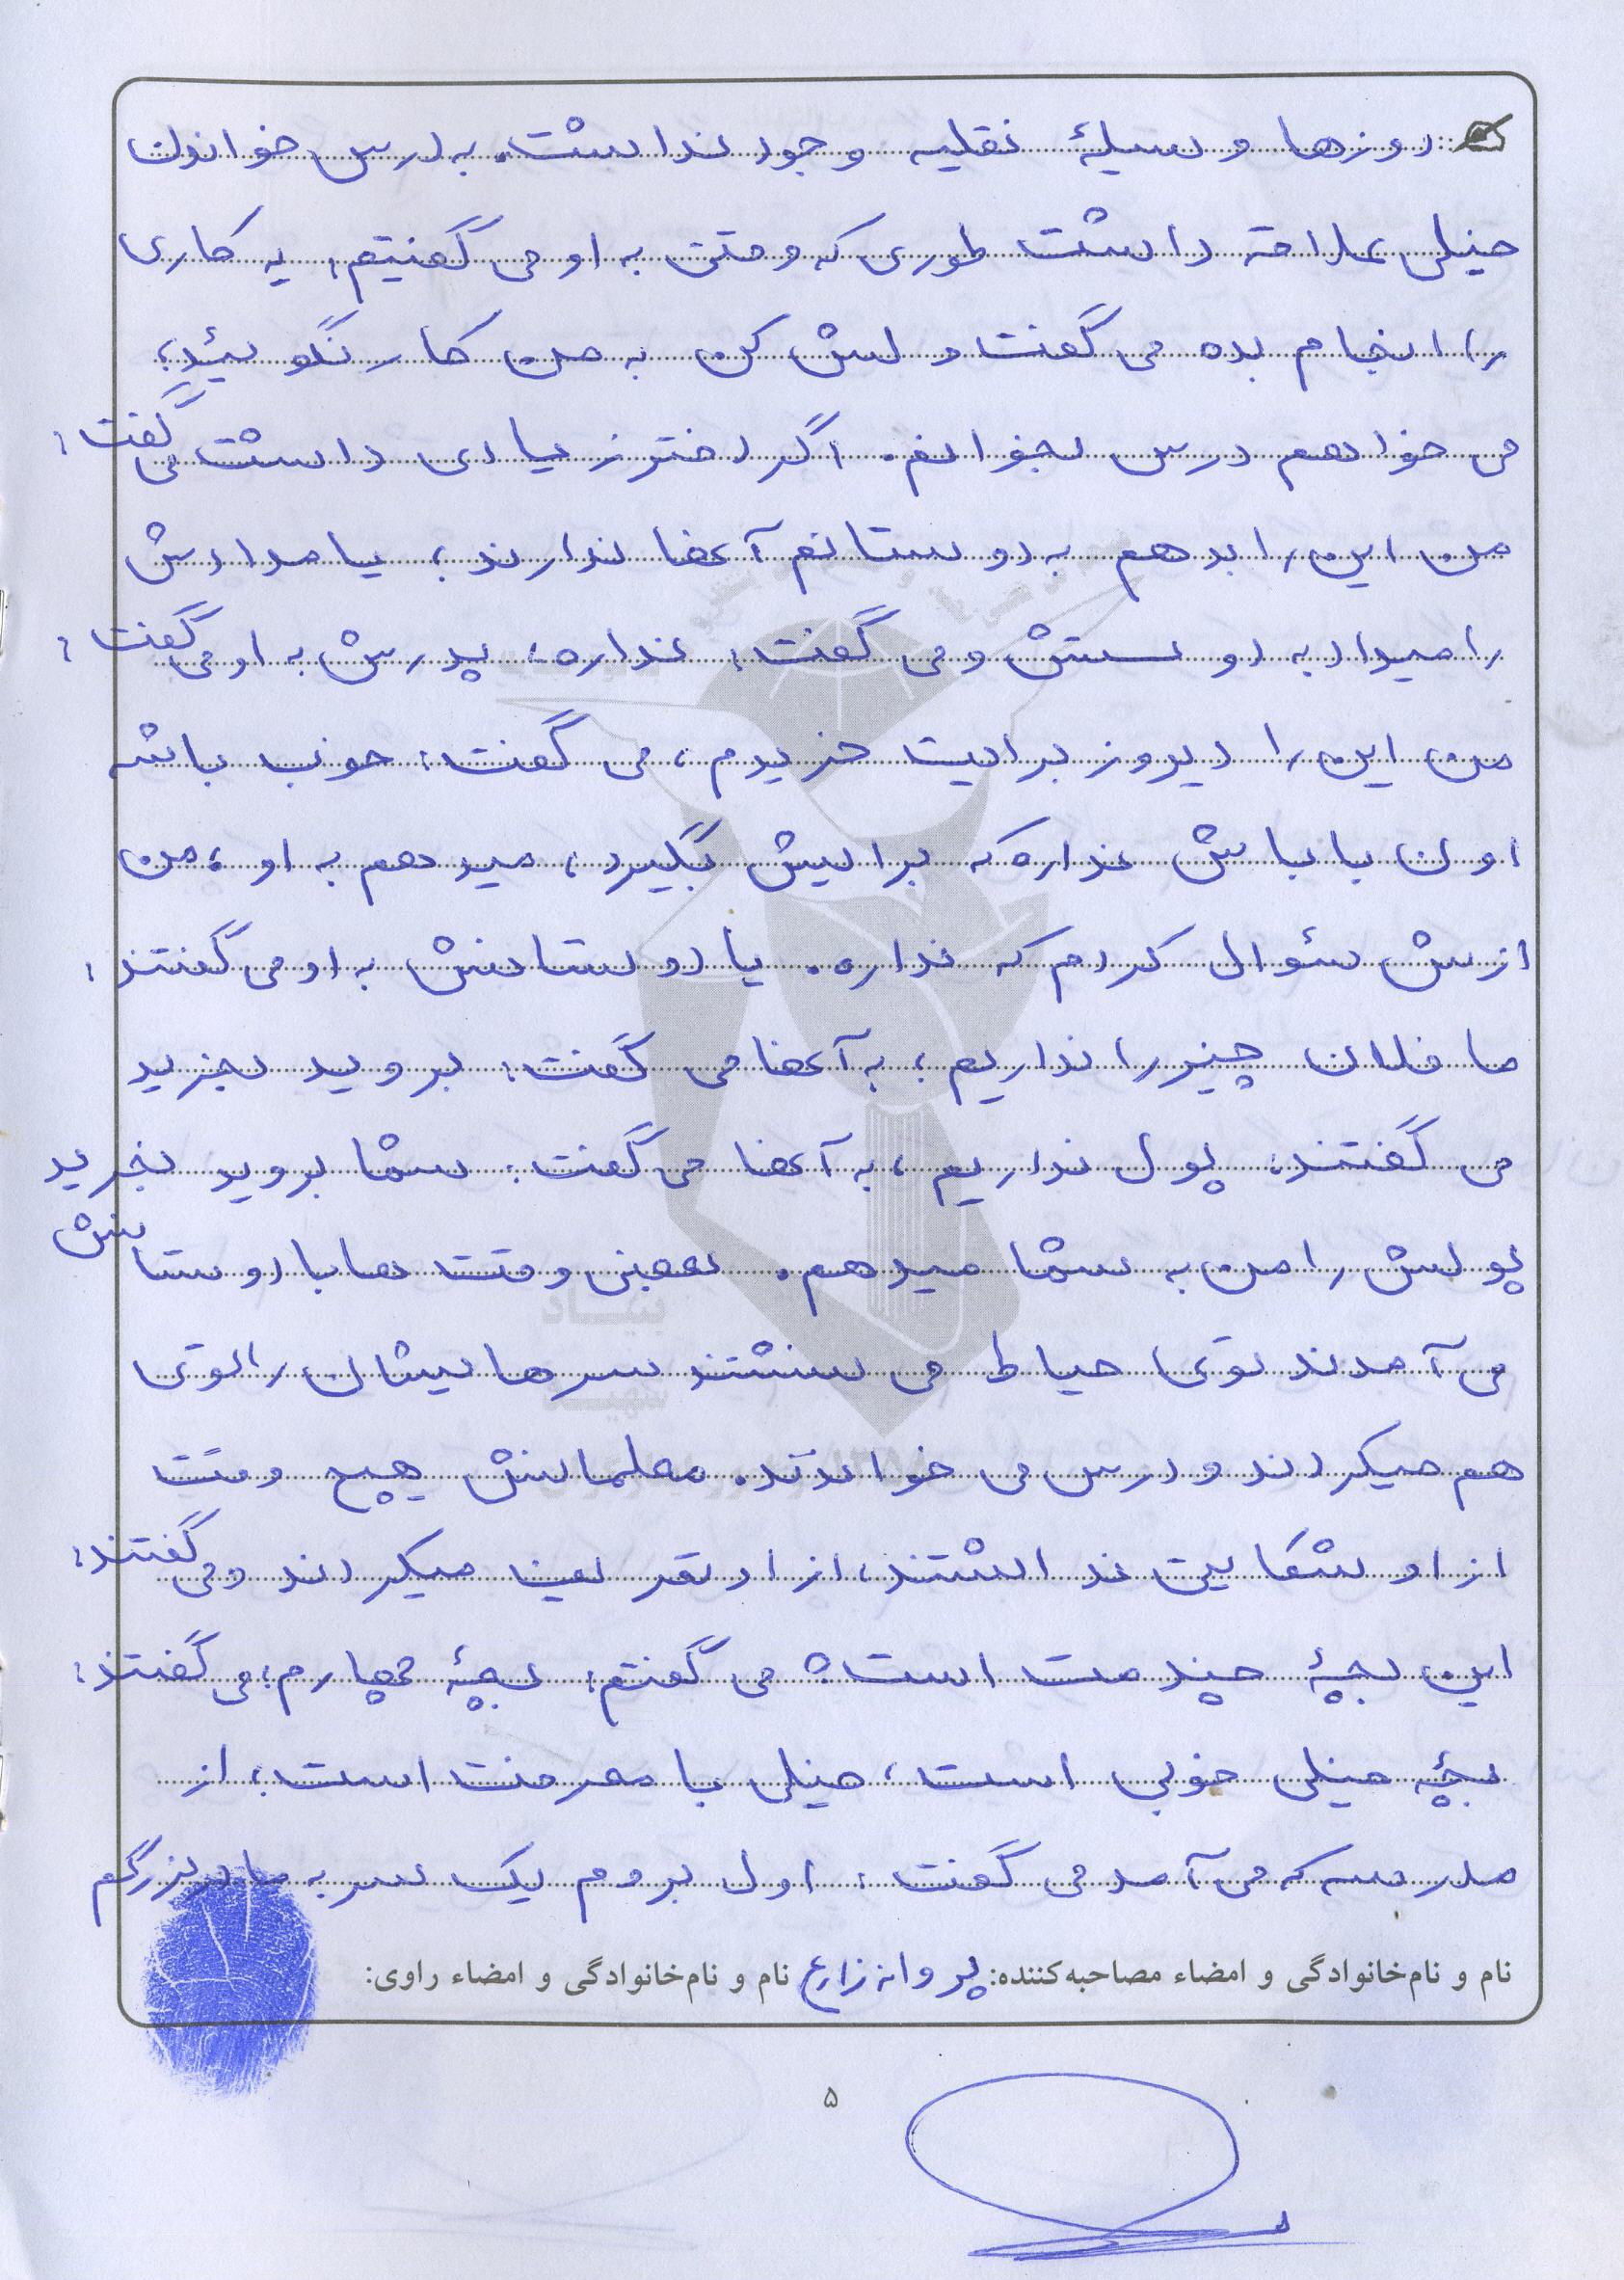 روزها وسیلهٔ نقلیه وجود نداشت. به درس خواندن
خیلی علاقه داشت طوری که وقتی به او می گفتیم: یه کاری
را انجام بده می گفت ولش کن به من کار نگوئید،
می خواهم درس بخوانم. اگر دفتر زیادی داشت می گفت:
من این را بدهم به دوستانم آنها ندارند، یا مدادش
را میداد به دوستش و می گفت: نداره، پدرش به او می گفت:
من این را دیروز برایت خریدم، می گفت: خوب باشه
اون باباش نداره که برایش بگیرد، میدهم به او، من
ازش سئوال کردم که نداره. یا دوستانش به او می گفتند:
ما فلان چیز را نداریم، به آنها می گفت: بروید بخرید
می گفتند: پول نداریم، به آنها می گفت: شما بروید بخرید
پولش را من به شما میدهم. بعضی وقت ها با دوستانش
می آمدند توی حیاط می نشستند سرهایشان را توی
هم میکردند و درس می خواندند. معلمانش هیچ وقت
از او شکایت نداشتند، از او تعریف میکردند و می گفتند:
این بچهٔ چندمت است؟ می گفتم: بچهٔ چهارم، می گفتند:
بچهٔ خیلی خوبی است، خیلی با معرفت است، از
مدرسه که می آمد می گفت: اول بروم یک سر به مادربزرگم
نام و نام‌خانوادگی و امضاء مصاحبه‌کننده: پروانه زارع نام و نام‌خانوادگی و امضاء راوی:
۵